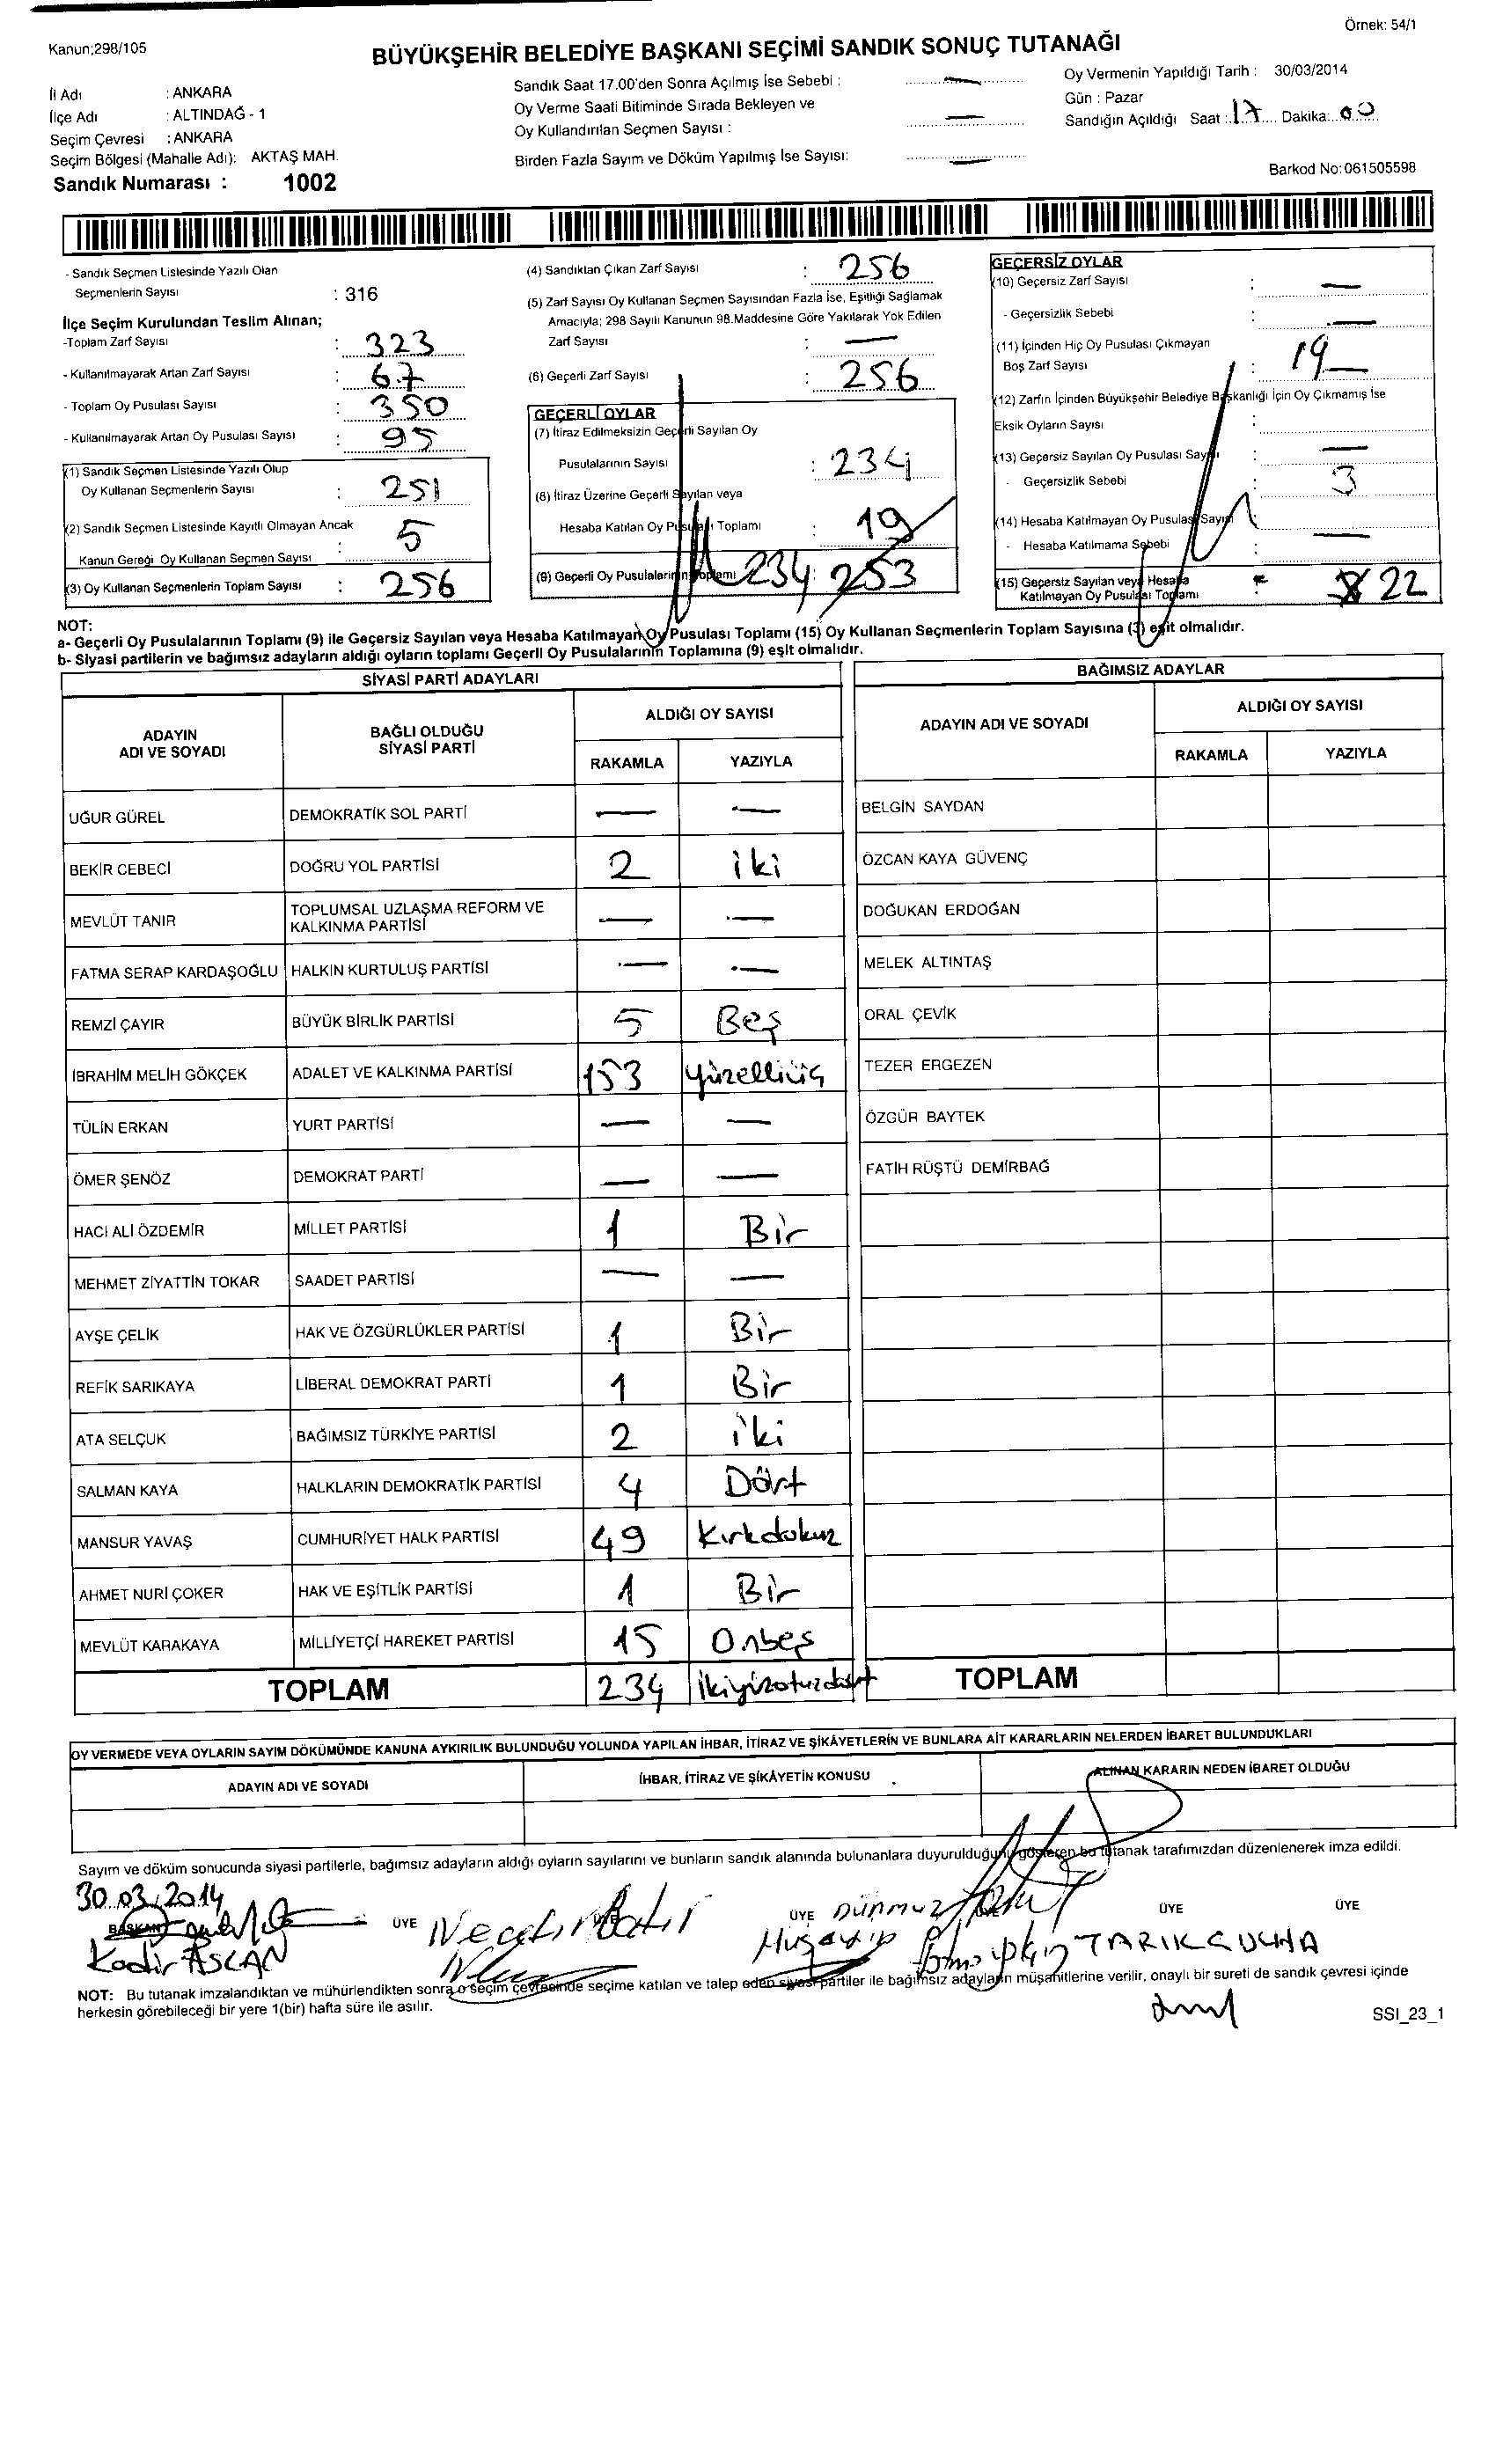 Örnek: 54/1
Kanun;298/105
BÜYÜKŞEHİR BELEDİYE BAŞKANI SEÇİMİ SANDIK SONUÇ TUTANAĞI
İl Adı : ANKARA
İlçe Adı : ALTINDAĞ - 1
Seçim Çevresi : ANKARA
Seçim Bölgesi (Mahalle Adı): AKTAŞ MAH.
Sandık Numarası : 1002
Sandık Saat 17.00'den Sonra Açılmış İse Sebebi : —
Oy Verme Saati Bitiminde Sırada Bekleyen ve
Oy Kullandırılan Seçmen Sayısı : —
Birden Fazla Sayım ve Döküm Yapılmış İse Sayısı: —
Oy Vermenin Yapıldığı Tarih : 30/03/2014
Gün : Pazar
Sandığın Açıldığı Saat : 17 Dakika: 00
Barkod No:061505598
- Sandık Seçmen Listesinde Yazılı Olan
Seçmenlerin Sayısı : 316
İlçe Seçim Kurulundan Teslim Alınan;
-Toplam Zarf Sayısı : 323
- Kullanılmayarak Artan Zarf Sayısı : 67
- Toplam Oy Pusulası Sayısı : 350
- Kullanılmayarak Artan Oy Pusulası Sayısı : 95
(1) Sandık Seçmen Listesinde Yazılı Olup
Oy Kullanan Seçmenlerin Sayısı : 251
(2) Sandık Seçmen Listesinde Kayıtlı Olmayan Ancak
Kanun Gereği Oy Kullanan Seçmen Sayısı : 5
(3) Oy Kullanan Seçmenlerin Toplam Sayısı : 256
(4) Sandıktan Çıkan Zarf Sayısı : 256
(5) Zarf Sayısı Oy Kullanan Seçmen Sayısından Fazla İse, Eşitliği Sağlamak
Amacıyla; 298 Sayılı Kanunun 98.Maddesine Göre Yakılarak Yok Edilen
Zarf Sayısı : —
(6) Geçerli Zarf Sayısı : 256
GEÇERLİ OYLAR
(7) İtiraz Edilmeksizin Geçerli Sayılan Oy
Pusulalarının Sayısı : 234
(8) İtiraz Üzerine Geçerli Sayılan veya
Hesaba Katılan Oy Pusulası Toplamı : 19
(9) Geçerli Oy Pusulalarının Toplamı 234 : 253
GEÇERSİZ OYLAR
(10) Geçersiz Zarf Sayısı : —
- Geçersizlik Sebebi : —
(11) İçinden Hiç Oy Pusulası Çıkmayan
Boş Zarf Sayısı : 19
(12) Zarfın İçinden Büyükşehir Belediye Başkanlığı İçin Oy Çıkmamış İse
Eksik Oyların Sayısı :
(13) Geçersiz Sayılan Oy Pusulası Sayısı : —
- Geçersizlik Sebebi : 3
(14) Hesaba Katılmayan Oy Pusulası Sayısı :
- Hesaba Katılmama Sebebi : —
(15) Geçersiz Sayılan veya Hesaba
Katılmayan Oy Pusulası Toplamı : 22
NOT:
a- Geçerli Oy Pusulalarının Toplamı (9) ile Geçersiz Sayılan veya Hesaba Katılmayan Oy Pusulası Toplamı (15) Oy Kullanan Seçmenlerin Toplam Sayısına (3) eşit olmalıdır.
b- Siyasi partilerin ve bağımsız adayların aldığı oyların toplamı Geçerli Oy Pusulalarının Toplamına (9) eşit olmalıdır.
SİYASİ PARTİ ADAYLARI
ADAYIN ADI VE SOYADI
BAĞLI OLDUĞU SİYASİ PARTİ
ALDIĞI OY SAYISI
RAKAMLA YAZIYLA
UĞUR GÜREL DEMOKRATİK SOL PARTİ — —
BEKİR CEBECİ DOĞRU YOL PARTİSİ 2 iki
MEVLÜT TANIR TOPLUMSAL UZLAŞMA REFORM VE KALKINMA PARTİSİ — —
FATMA SERAP KARDAŞOĞLU HALKIN KURTULUŞ PARTİSİ — —
REMZİ ÇAYIR BÜYÜK BİRLİK PARTİSİ 5 Beş
İBRAHİM MELİH GÖKÇEK ADALET VE KALKINMA PARTİSİ 153 yüzelliüç
TÜLİN ERKAN YURT PARTİSİ — —
ÖMER ŞENÖZ DEMOKRAT PARTİ — —
HACI ALİ ÖZDEMİR MİLLET PARTİSİ 1 Bir
MEHMET ZİYATTİN TOKAR SAADET PARTİSİ — —
AYŞE ÇELİK HAK VE ÖZGÜRLÜKLER PARTİSİ 1 Bir
REFİK SARIKAYA LİBERAL DEMOKRAT PARTİ 1 Bir
ATA SELÇUK BAĞIMSIZ TÜRKİYE PARTİSİ 2 iki
SALMAN KAYA HALKLARIN DEMOKRATİK PARTİSİ 4 Dört
MANSUR YAVAŞ CUMHURİYET HALK PARTİSİ 49 Kırkdokuz
AHMET NURİ ÇOKER HAK VE EŞİTLİK PARTİSİ 1 Bir
MEVLÜT KARAKAYA MİLLİYETÇİ HAREKET PARTİSİ 15 Onbeş
TOPLAM 234 ikiyüzotuzdört
BAĞIMSIZ ADAYLAR
ADAYIN ADI VE SOYADI
ALDIĞI OY SAYISI
RAKAMLA YAZIYLA
BELGİN SAYDAN
ÖZCAN KAYA GÜVENÇ
DOĞUKAN ERDOĞAN
MELEK ALTINTAŞ
ORAL ÇEVİK
TEZER ERGEZEN
ÖZGÜR BAYTEK
FATİH RÜŞTÜ DEMİRBAĞ
TOPLAM
OY VERMEDE VEYA OYLARIN SAYIM DÖKÜMÜNDE KANUNA AYKIRILIK BULUNDUĞU YOLUNDA YAPILAN İHBAR, İTİRAZ VE ŞİKÂYETLERİN VE BUNLARA AİT KARARLARIN NELERDEN İBARET BULUNDUKLARI
ADAYIN ADI VE SOYADI
İHBAR, İTİRAZ VE ŞİKÂYETİN KONUSU
ALINAN KARARIN NEDEN İBARET OLDUĞU
Sayım ve döküm sonucunda siyasi partilerle, bağımsız adayların aldığı oyların sayılarını ve bunların sandık alanında bulunanlara duyurulduğunu gösteren bu tutanak tarafımızdan düzenlenerek imza edildi.
30.03.2014
BAŞKAN ÜYE ÜYE ÜYE ÜYE ÜYE
Kadir ASCAN
NOT: Bu tutanak imzalandıktan ve mühürlendikten sonra o seçim çevresinde seçime katılan ve talep eden siyasi partiler ile bağımsız adayların müşahitlerine verilir, onaylı bir sureti de sandık çevresi içinde
herkesin görebileceği bir yere 1(bir) hafta süre ile asılır.
SSI_23_1